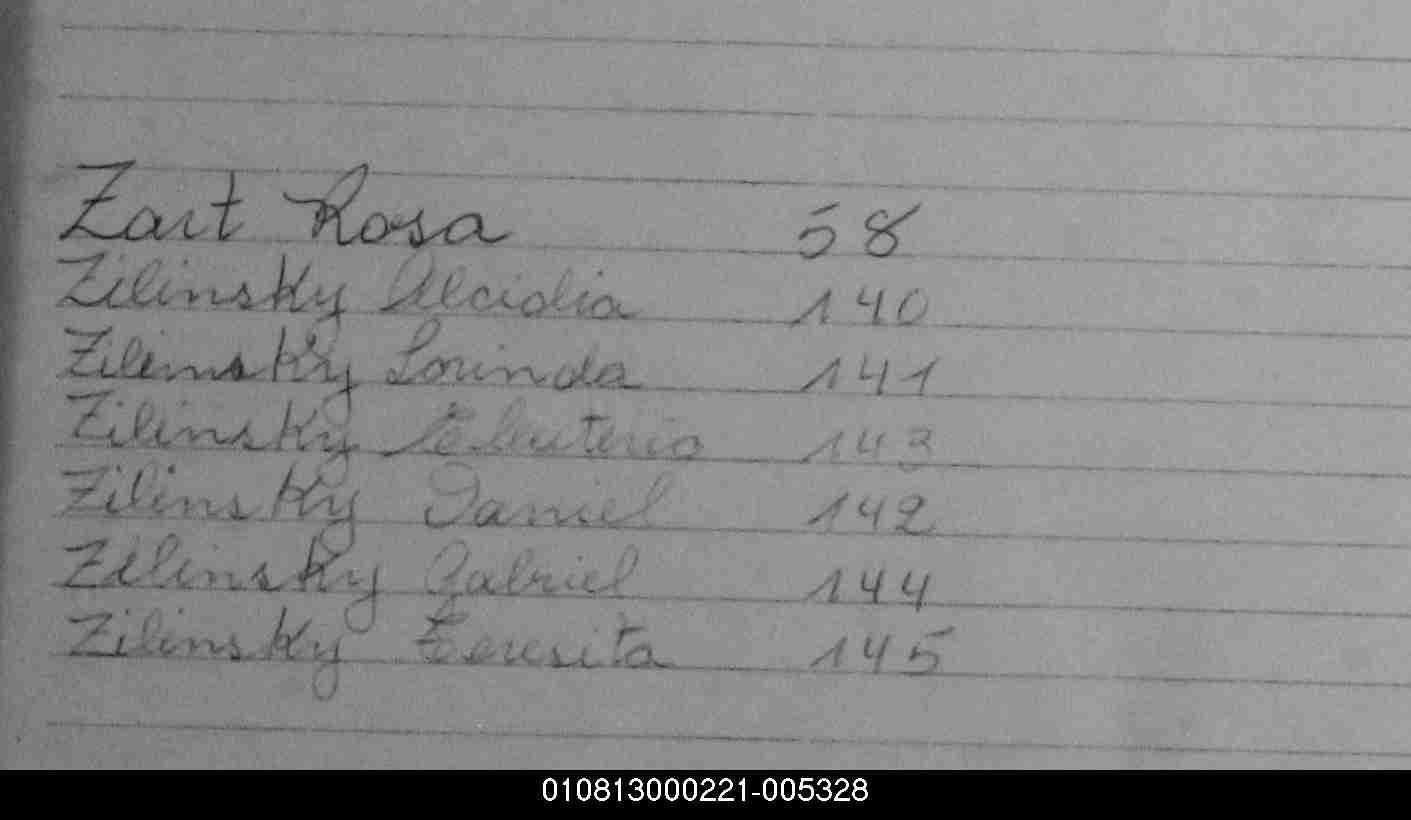 Zart Rosa 58
Zilinsky Alcidia 140
Zilinsky Lorinda 141
Zilinsky Eleuterio 143
Zilinsky Daniel 142
Zilinsky Gabriel 144
Zilinsky Teresita 145
010813000221-005328